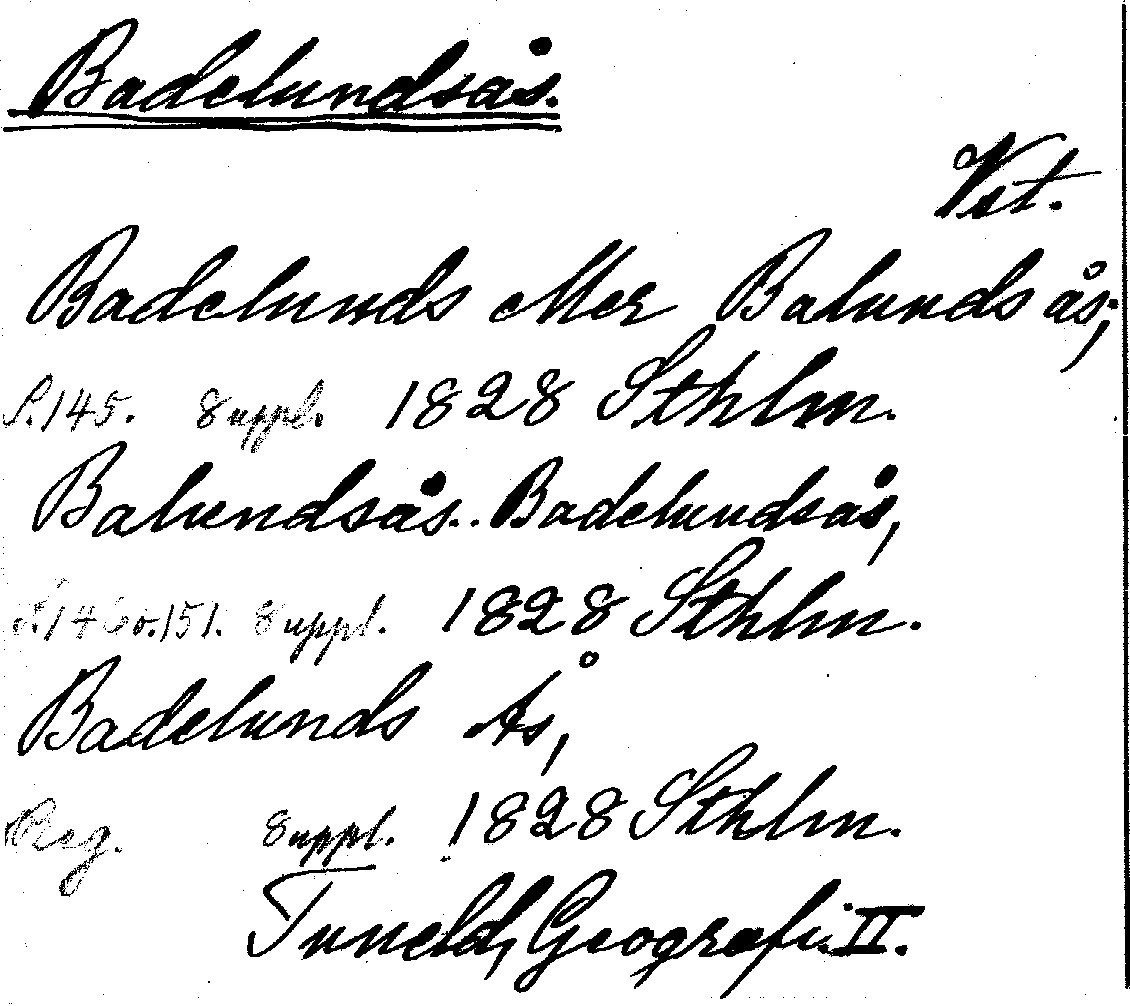 Badelundsås.
Vst.
Badelunds eller Balunds ås;
S. 145. Suppl. 1828 Sthlm.
Balundsås.. Badelundsås,
S. 146 o. 151. Suppl. 1828 Sthlm.
Badelunds Ås,
Reg. Suppl. 1828 Sthlm.
Tuneld, Geografi. II.